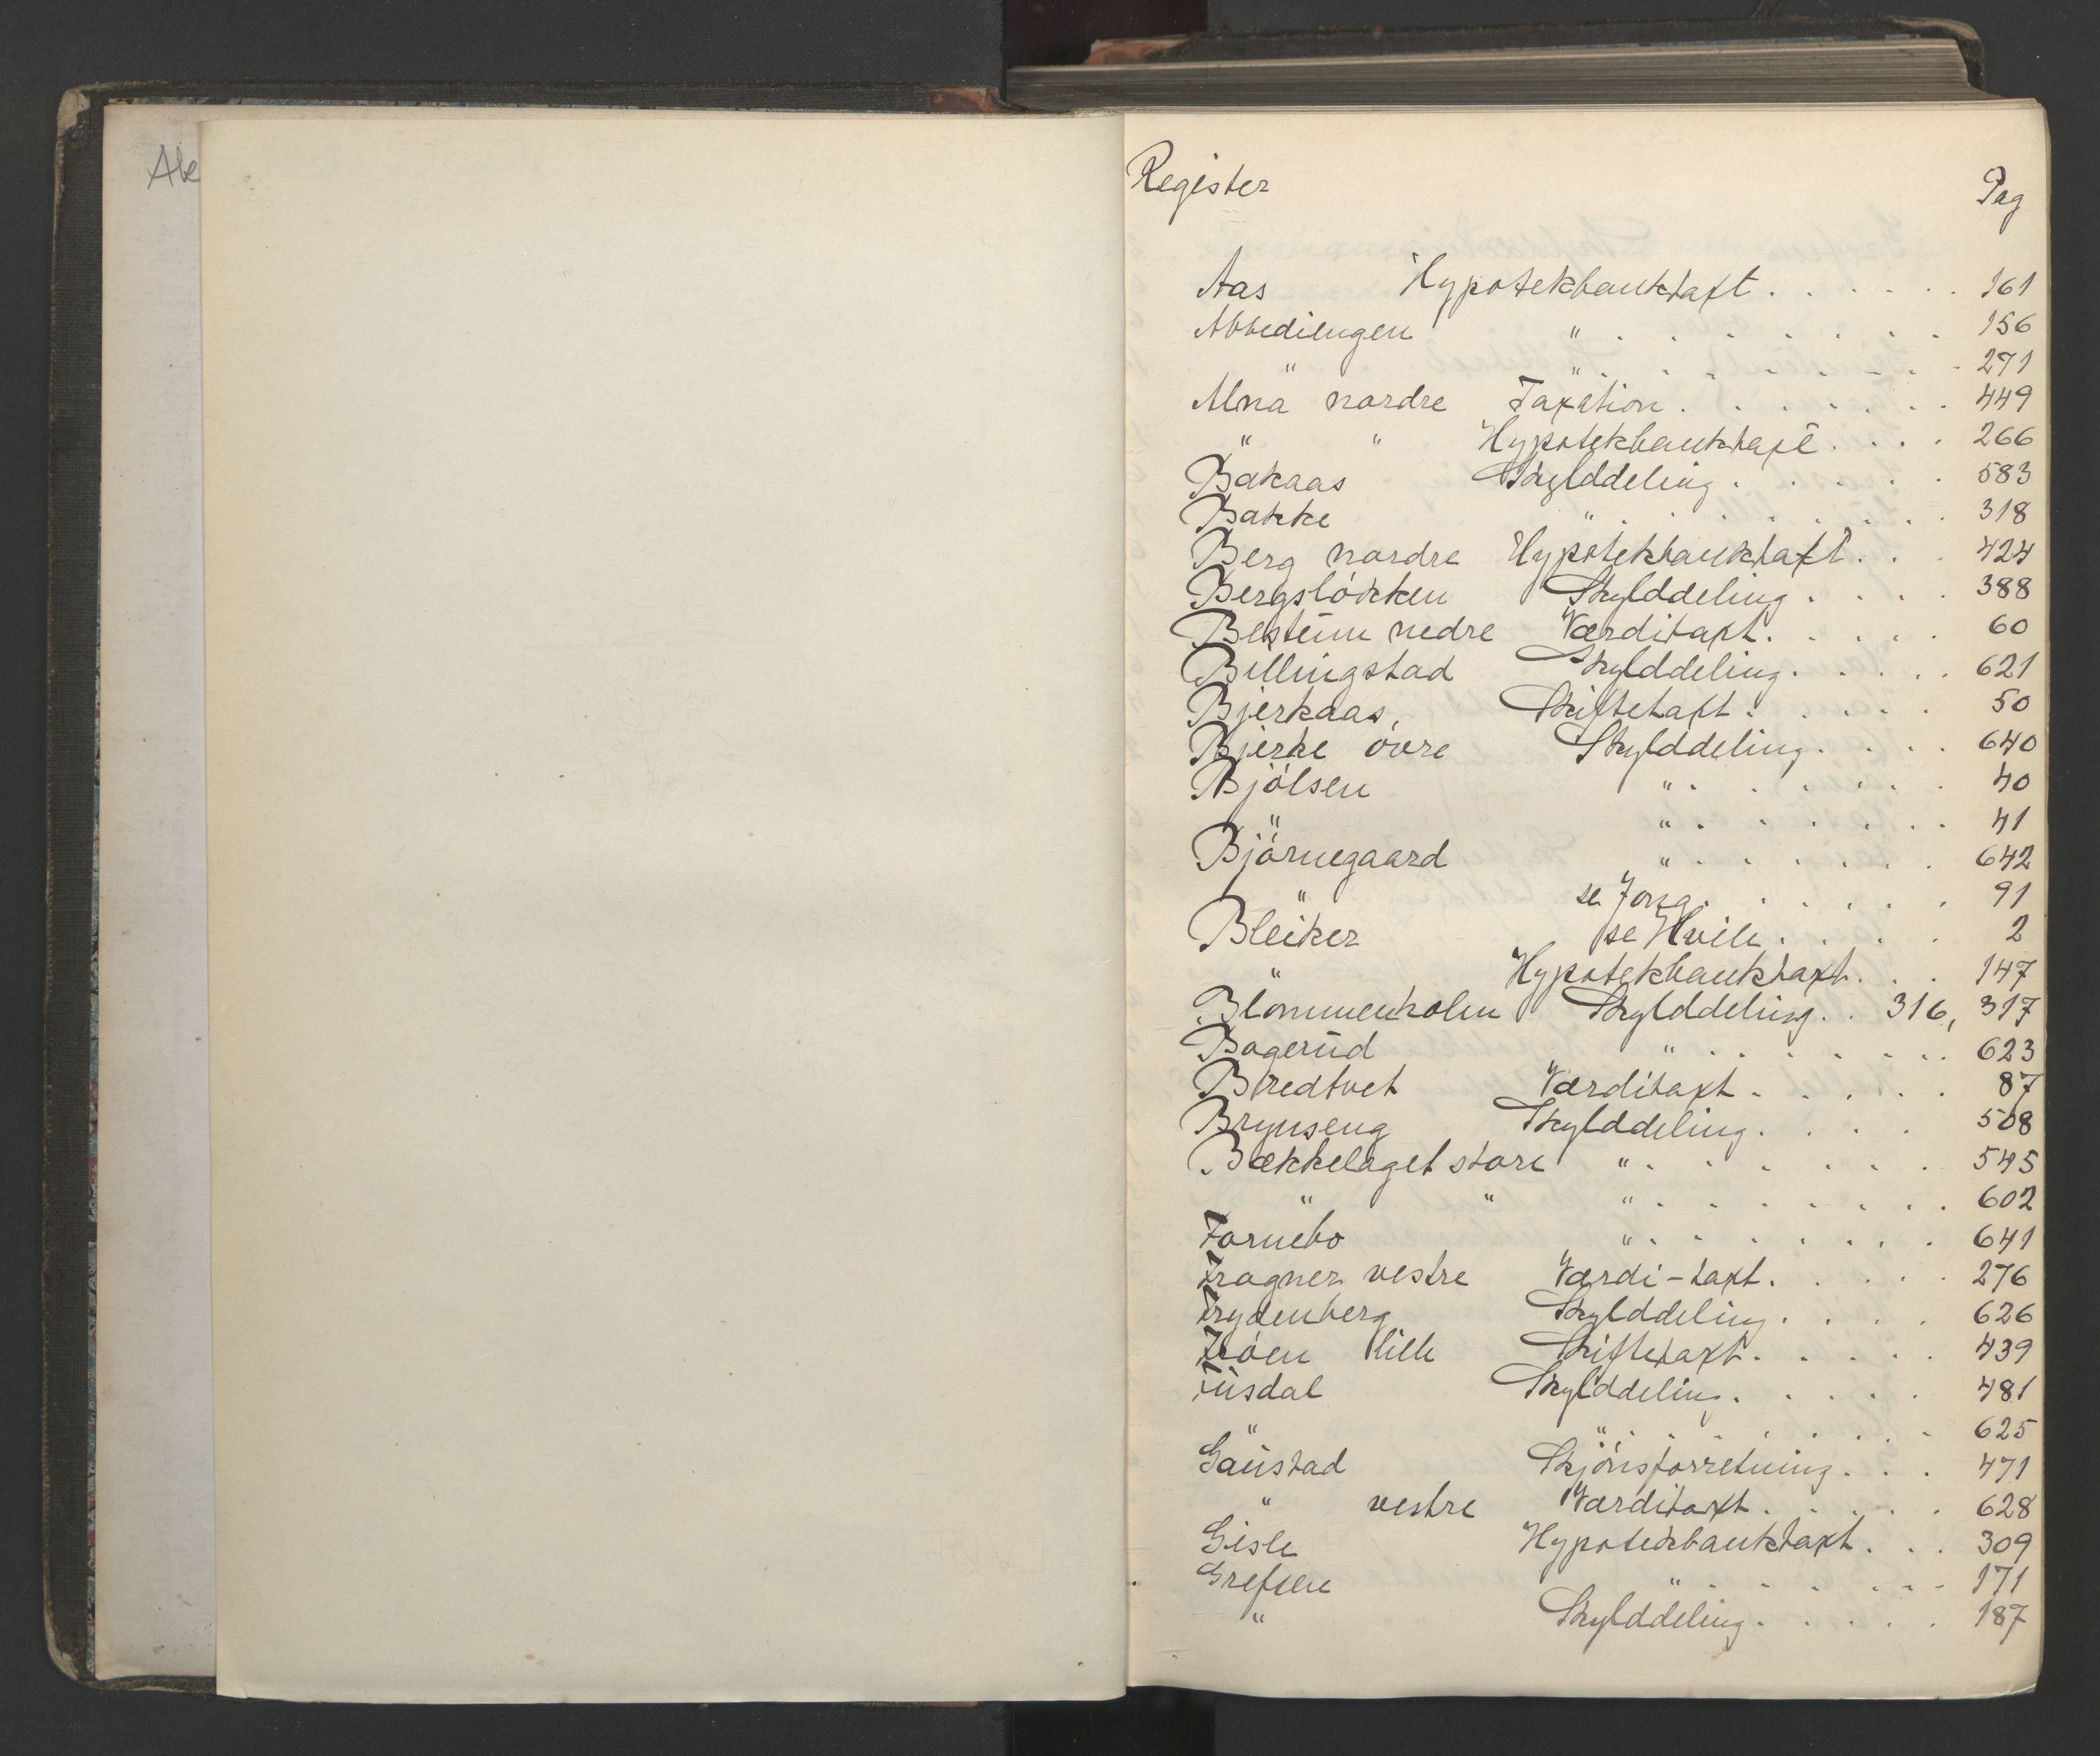 Ake
Register
Pag
Aas Hypotekbanktaxt . . . . . . 161
Abbediengen " . . . . . . . . 156
" " . . . . . . . . 271
Alna nordre Taxation . . . . . . . 449
" " Hypotekbanktaxt . . . . 266
Bakaas Skylddeling . . . . . 583
Bakke " . . . . . . . . 318
Berg nordre Hypotekbanktaxt . . . 424
Bergsløkken Skylddeling . . . . 388
Bestum nedre Værditaxt . . . . . 60
Billingstad Skylddeling . . . . . 621
Bjerkaas, Skiftetaxt . . . . . 50
Bjerke övre Skylddeling . . . . 640
Bjölsen " . . . . . . . 40
" " . . . . . . . 41
Björnegaard " . . . . . . . 642
" se Jong . . . . . . 91
Bleiker se Hvile . . . . 2
" Hypotekbanktaxt . . . 147
Blommenholm Skylddeling . . 316, 317
Bogerud " . . . . . . . 623
Bredtvet Værditaxt . . . . . 87
Brynseng Skylddeling . . . . 508
Bækkelaget store " . . . . . . 545
" " " . . . . . . . 602
Fornebo " . . . . . . . 641
Frogner vestre Værdi-taxt . . . . . 276
Frydenberg Skylddeling . . . . 626
Fröen lille Skiftetaxt . . . . . 439
Fusdal Skylddeling . . . . . 481
" " . . . . . . . 625
Gaustad Skjönsforretning . . . 471
" vestre Værditaxt . . . . . 628
Gisle Hypotekbanktaxt . . . 309
Grefsen " . . . . . . 171
" Skylddeling . . . . . 187